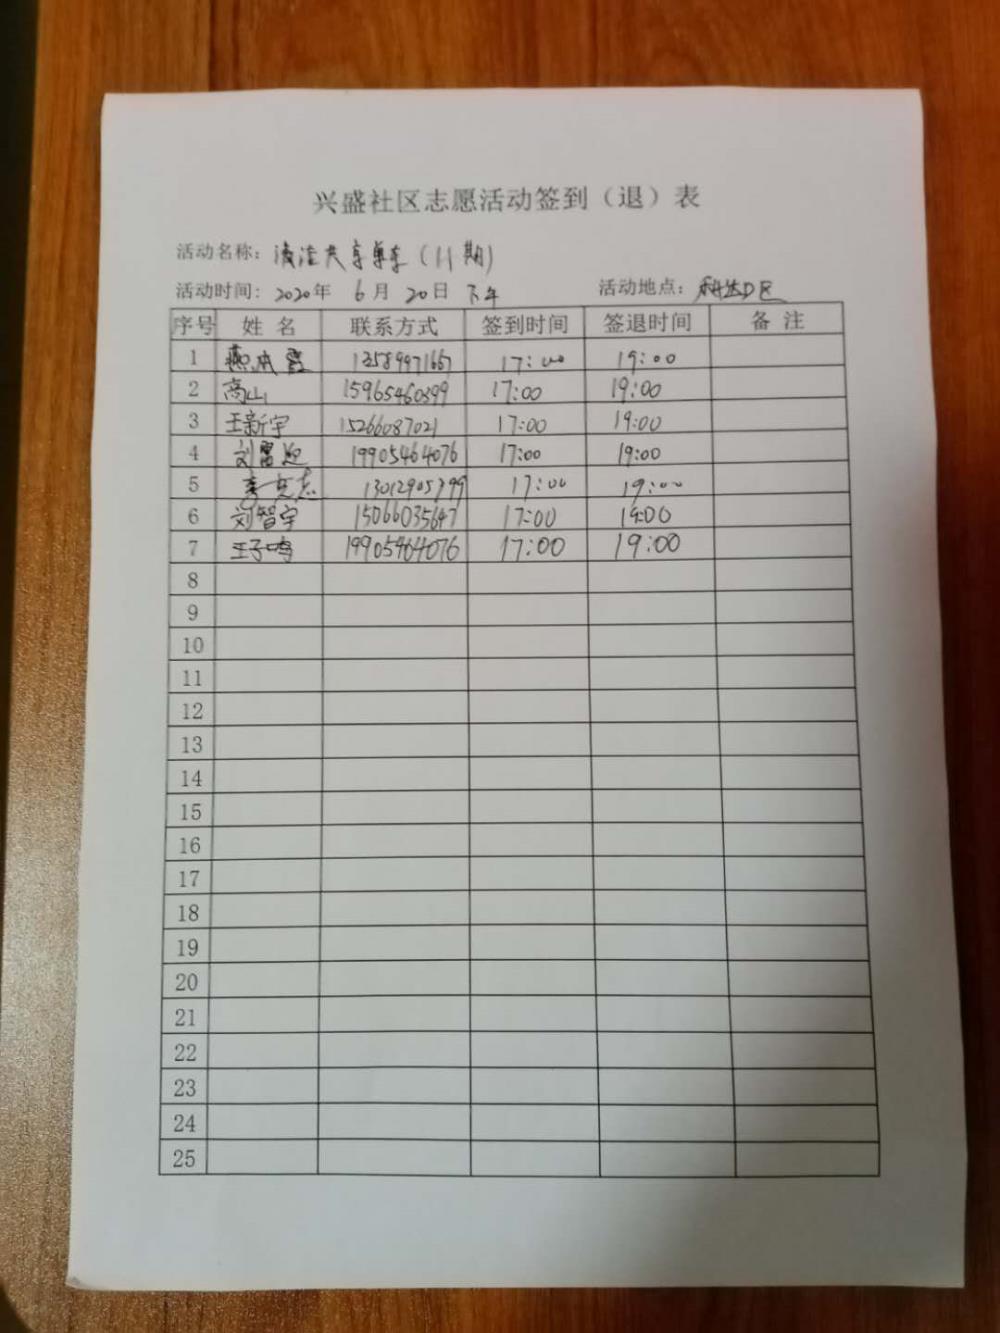 兴盛社区志愿活动签到（退）表
活动名称：清洁共享单车（11期）
活动时间：2020年 6月 20日 下午 活动地点：科达D区
序号 姓名 联系方式 签到时间 签退时间 备注
1 燕 霞 13589971667 17:00 19:00
2 高山 15965460399 17:00 19:00
3 王新宇 15266087021 17:00 19:00
4 刘 迎 19905464076 17:00 19:00
5 李 志 17:00 19:00
6 刘智宇 15066035647 17:00 19:00
7 王子鸣 19905464076 17:00 19:00
8
9
10
11
12
13
14
15
16
17
18
19
20
21
22
23
24
25